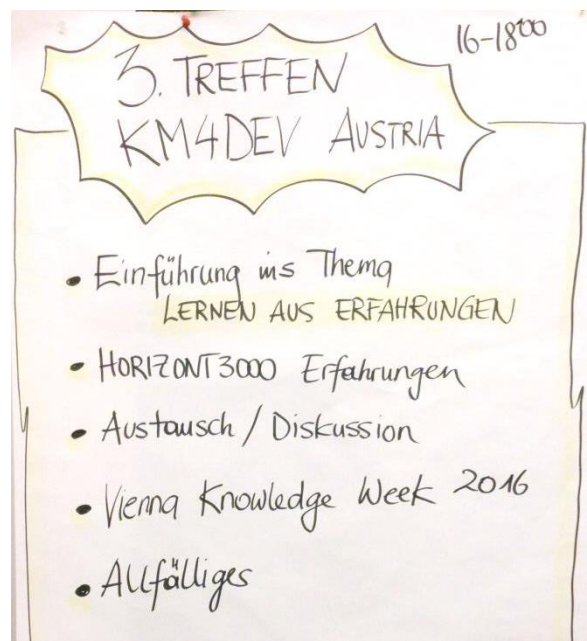 16-18⁰⁰
3. TREFFEN
KM4DEV AUSTRIA
• Einführung ins Thema
LERNEN AUS ERFAHRUNGEN
• HORIZONT3000 Erfahrungen
• Austausch / Diskussion
• Vienna Knowledge Week 2016
• Allfälliges